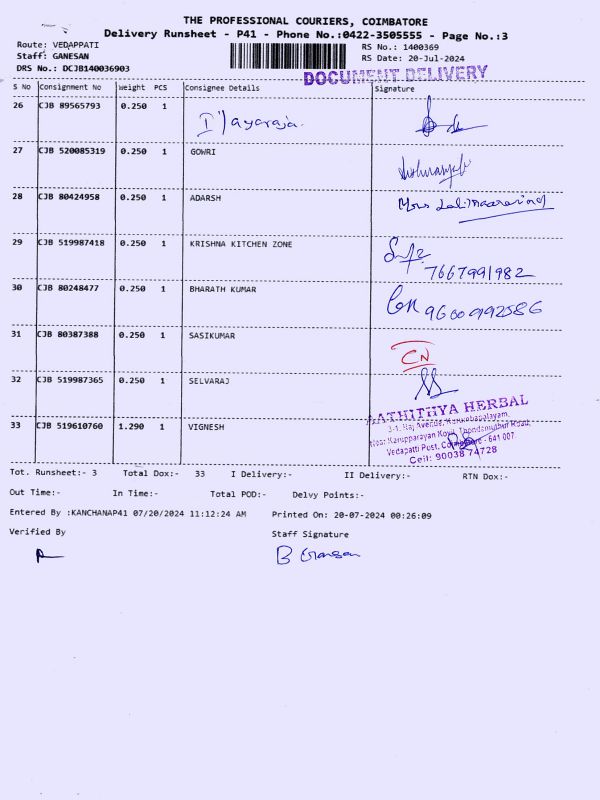 THE PROFESSIONAL COURIERS, COIMBATORE
Delivery Runsheet - P41 - Phone No.:0422-3505555 - Page No.:3
Route: VEDAPPATI RS No.: 1400369
Staff: GANESAN RS Date: 20-Jul-2024
DRS No.: DCJB140036903
DOCUMENT DELIVERY
S No Consignment No Weight PCS Consignee Details Signature
26 CJB 89565793 0.250 1
27 CJB 520085319 0.250 1 GOWRI
28 CJB 80424958 0.250 1 ADARSH
29 CJB 519987418 0.250 1 KRISHNA KITCHEN ZONE
7667991982
30 CJB 80248477 0.250 1 BHARATH KUMAR
9600992586
31 CJB 80387388 0.250 1 SASIKUMAR
CN
32 CJB 519987365 0.250 1 SELVARAJ
33 CJB 519610760 1.290 1 VIGNESH
AATHITHYA HERBAL
3-1, Raj Avenue,
Karupparayan Kovil, Thondamuthur Road,
Vedapatti Post, Coimbatore - 641 007.
Cell: 90038 74728
Tot. Runsheet:- 3 Total Dox:- 33 I Delivery:- II Delivery:- RTN Dox:-
Out Time:- In Time:- Total POD:- Delvy Points:-
Entered By :KANCHANAP41 07/20/2024 11:12:24 AM Printed On: 20-07-2024 00:26:09
Verified By Staff Signature
B Ganesan